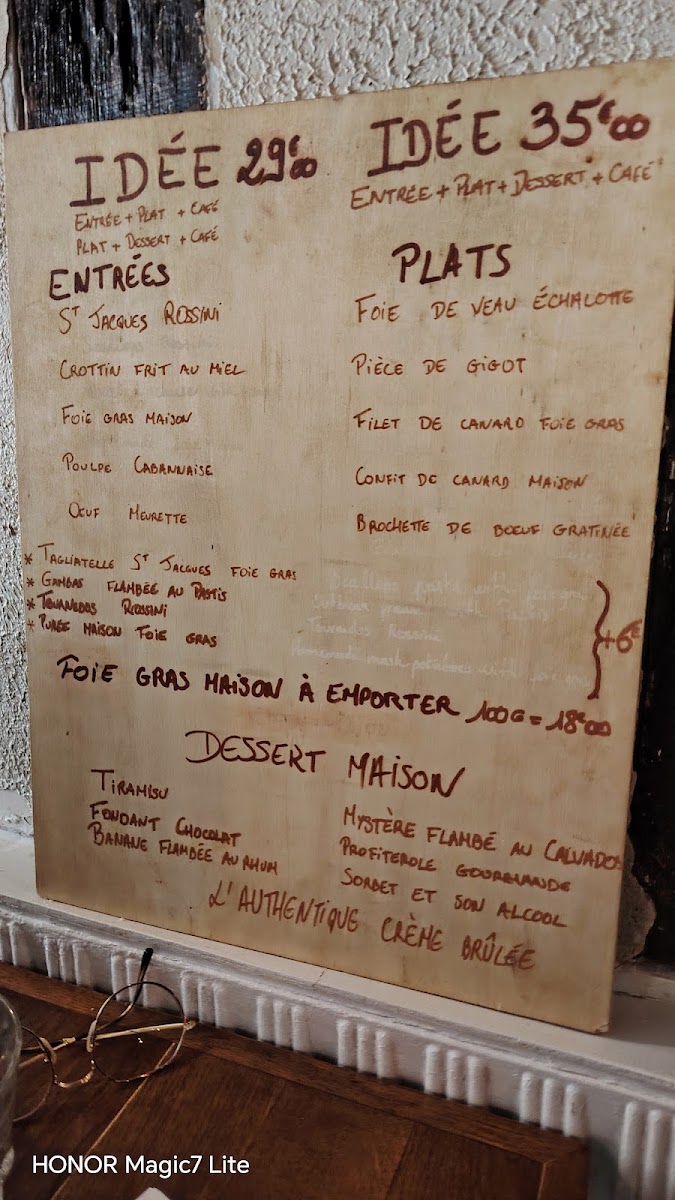 IDÉE 29€00
ENTRÉE + PLAT + CAFÉ
PLAT + DESSERT + CAFÉ
IDÉE 35€00
ENTRÉE + PLAT + DESSERT + CAFÉ
ENTRÉES
ST JACQUES ROSSINI
CROTTIN FRIT AU MIEL
FOIE GRAS MAISON
POULPE CABANNAISE
OEUF MEURETTE
PLATS
FOIE DE VEAU ÉCHALOTTE
PIÈCE DE GIGOT
FILET DE CANARD FOIE GRAS
CONFIT DE CANARD MAISON
BROCHETTE DE BOEUF GRATINÉE
* TAGLIATELLE ST JACQUES FOIE GRAS
* GAMBAS FLAMBÉE AU PASTIS
* TOURNEDOS ROSSINI
* PURÉE MAISON FOIE GRAS
+6€
FOIE GRAS MAISON À EMPORTER 100G = 18€00
DESSERT MAISON
TIRAMISU
FONDANT CHOCOLAT
BANANE FLAMBÉE AU RHUM
MYSTÈRE FLAMBÉ AU CALVADOS
PROFITEROLE GOURMANDE
SORBET ET SON ALCOOL
L'AUTHENTIQUE CRÈME BRÛLÉE
HONOR Magic7 Lite